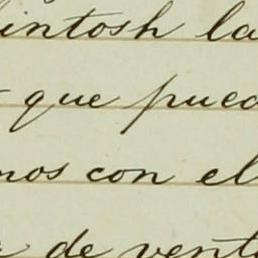 intosh la
que pued
nos con el
de vent